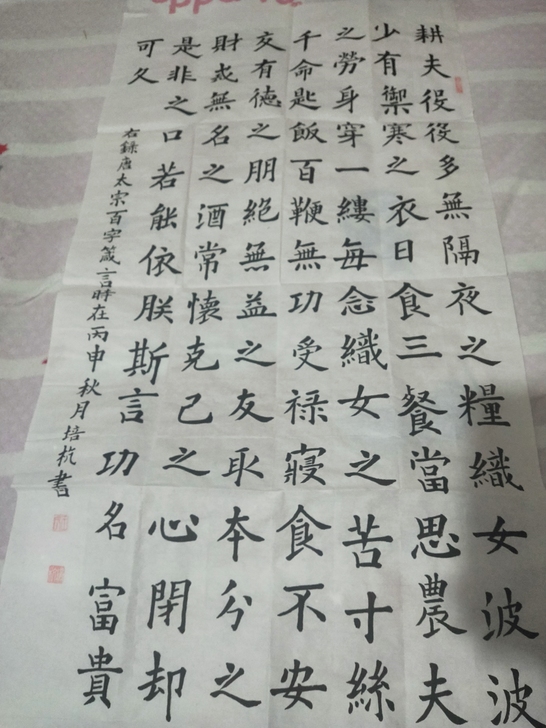 耕夫役役多無隔夜之糧織女波波
少有禦寒之衣日食三餐當思農夫
之勞身穿一縷每念織女之苦寸絲
千命匙飯百鞭無功受祿寢食不安
交有德之朋絕無益之友取本分之
財戒無名之酒常懷克己之心閉却
是非之口若能依朕斯言功名富貴
可久
右錄唐太宗百字箴言時在丙申秋月培杭書